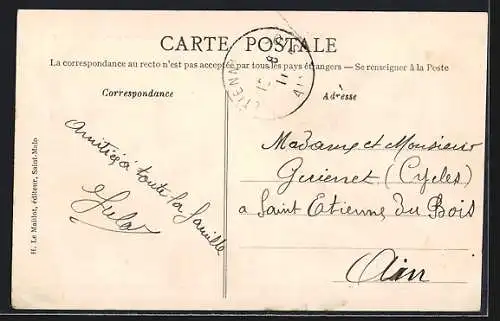 CARTE POSTALE
La correspondance au recto n'est pas acceptée par tous les pays étrangers — Se renseigner à la Poste
Correspondance
Adresse
H. Le Maillot, éditeur, Saint-Malo
Amitiés à toute la famille
Madame et Monsieur
(Cycles)
a Saint Etienne du Bois
Ain